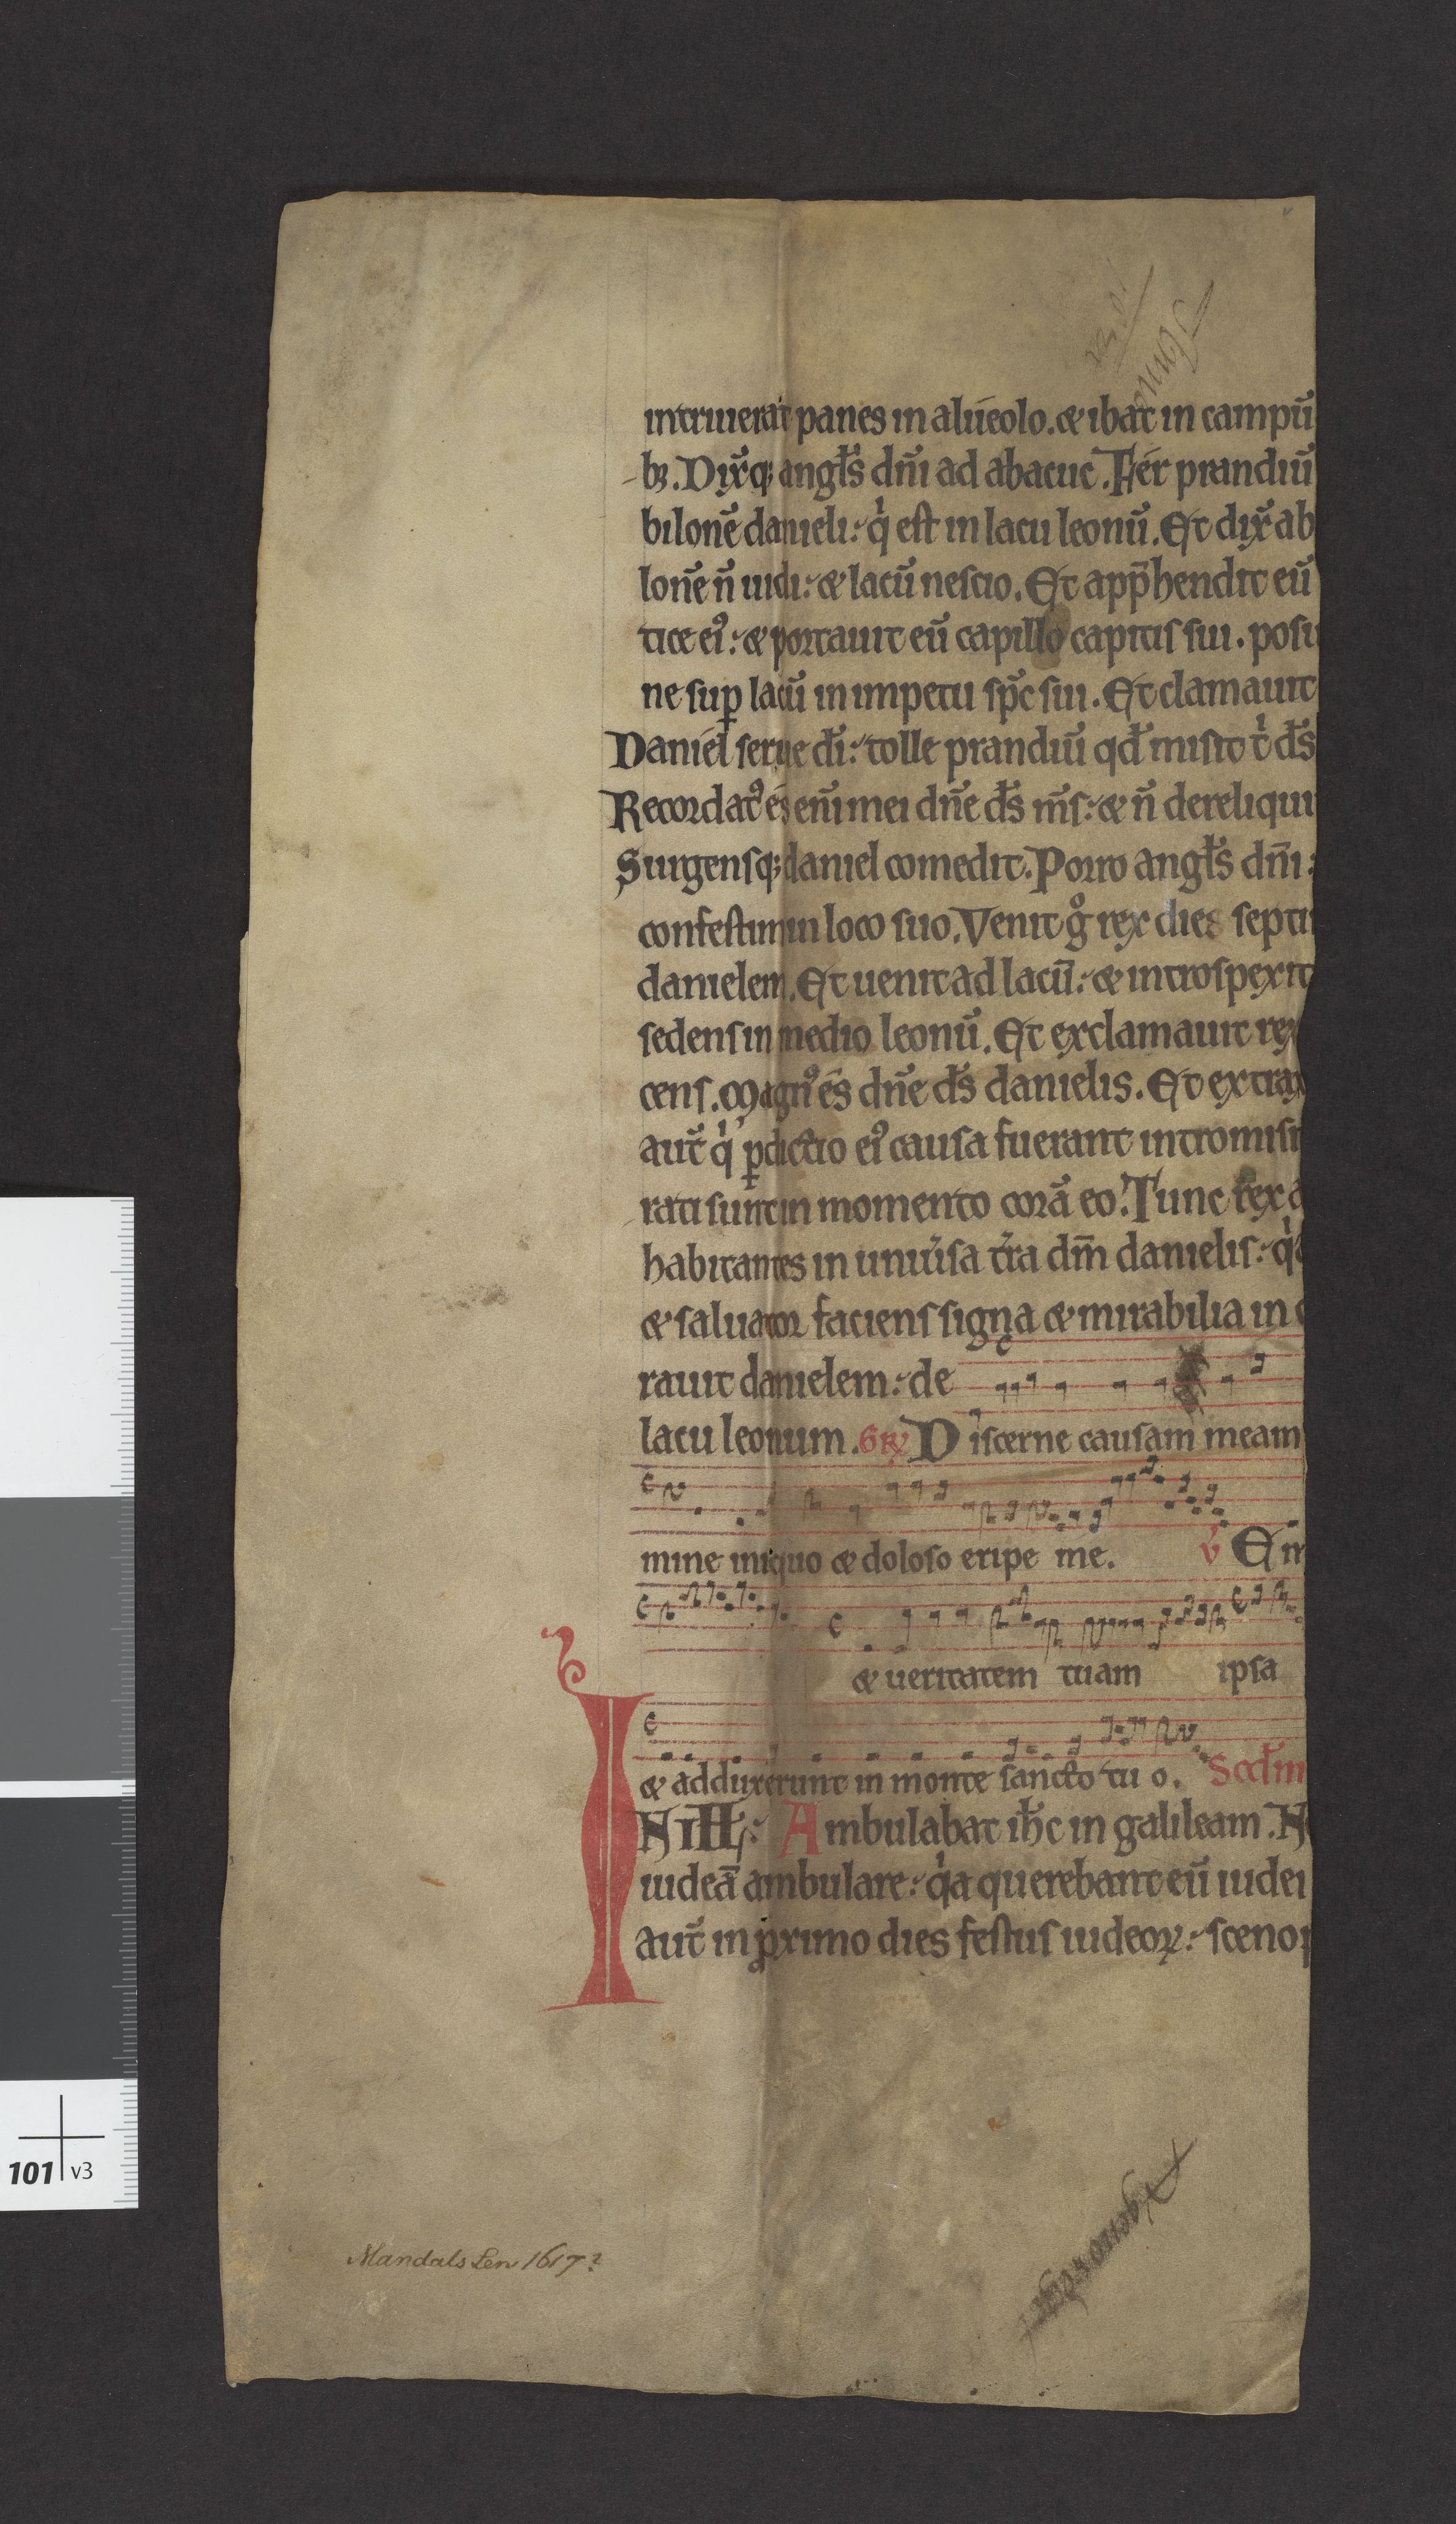 intriuerat panes in alueolo. & ibat in campu̅
bꝫ. Dix̅qꝫ angl̅s dn̅i ad abacuc. Fer prandiu̅
bilone̅ danieli: qⁱ est in lacu leonu̅. Et dix̅ ab
lone̅ n̅ uidi: & lacu̅ nescio. Et app̅hendit eu̅
tice eiꝰ: & portauit eu̅ capillo capitis sui. posu
ne suꝑ lacu̅ in impetu sp̅c sui. Et clamauit
Daniel serue di̅: tolle prandiu̅ qd̅ misit tⁱ ds̅
Recordatꝰ es eni̅ mei dn̅e ds̅ m̅s: & n̅ dereliqui
Surgensqꝫ daniel comedit. Porro angl̅s dn̅i:
confestim in loco suo. Venit gͦ rex die septi
danielem. Et uenit ad lacu̅: & introspexit
sedens in medio leonu̅. Et exclamauit rex
cens. Magnꝰ es dn̅e ds̅ danielis. Et extrax
aut̅ qⁱ ꝑdictio eiꝰ causa fuerant intromisi
rati sunt in momento cora̅ eo. Tunc rex a
habitantes in uniu̅sa t̅ra dm̅ danielis: qⁱ
& saluator faciens signa & mirabilia in c
rauit danielem: de
lacu leonum. Gr̅ Discerne causam meam
mine iniquo & doloso eripe me. v̅ Em
& ueritatem tuam ipsa
& adduxerunt in monte sancto tuo. Scd̅m
IN iỻ: Ambulabat ih̅c in galileam. N
iudea̅ ambulare: qⁱa querebant eu̅ iudei
aut̅ in ꝓximo dies festus iudeoꝝ: scenop
Mandals Len 1617?
101 v3